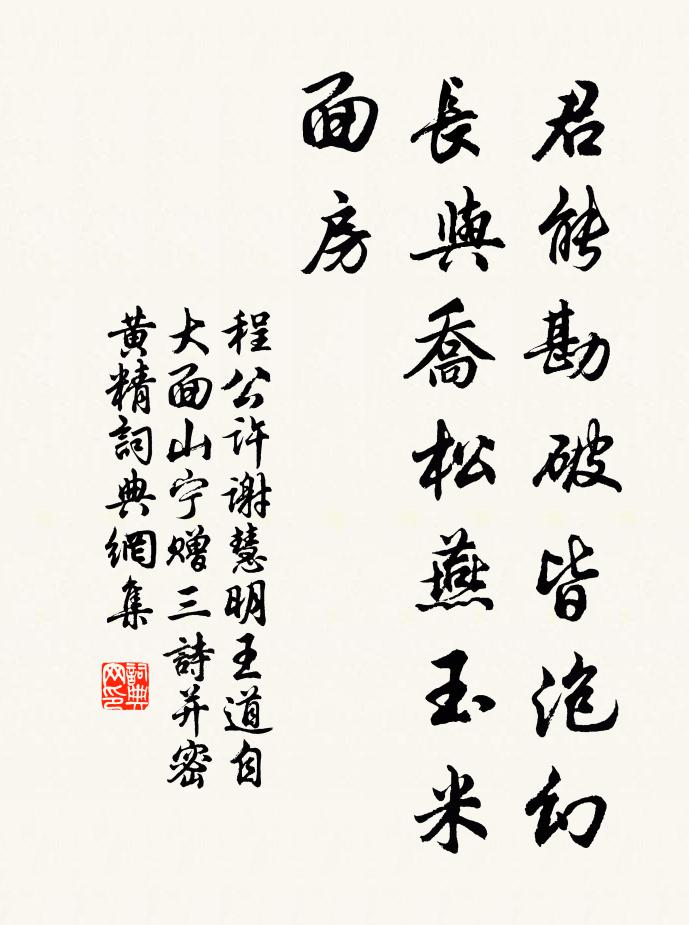 君能勘破皆泡幻
長與喬松燕玉米
面房
程公許谢慧明王道自
大面山宁赠三詩并密
黄精詞典網集
詞典
网印